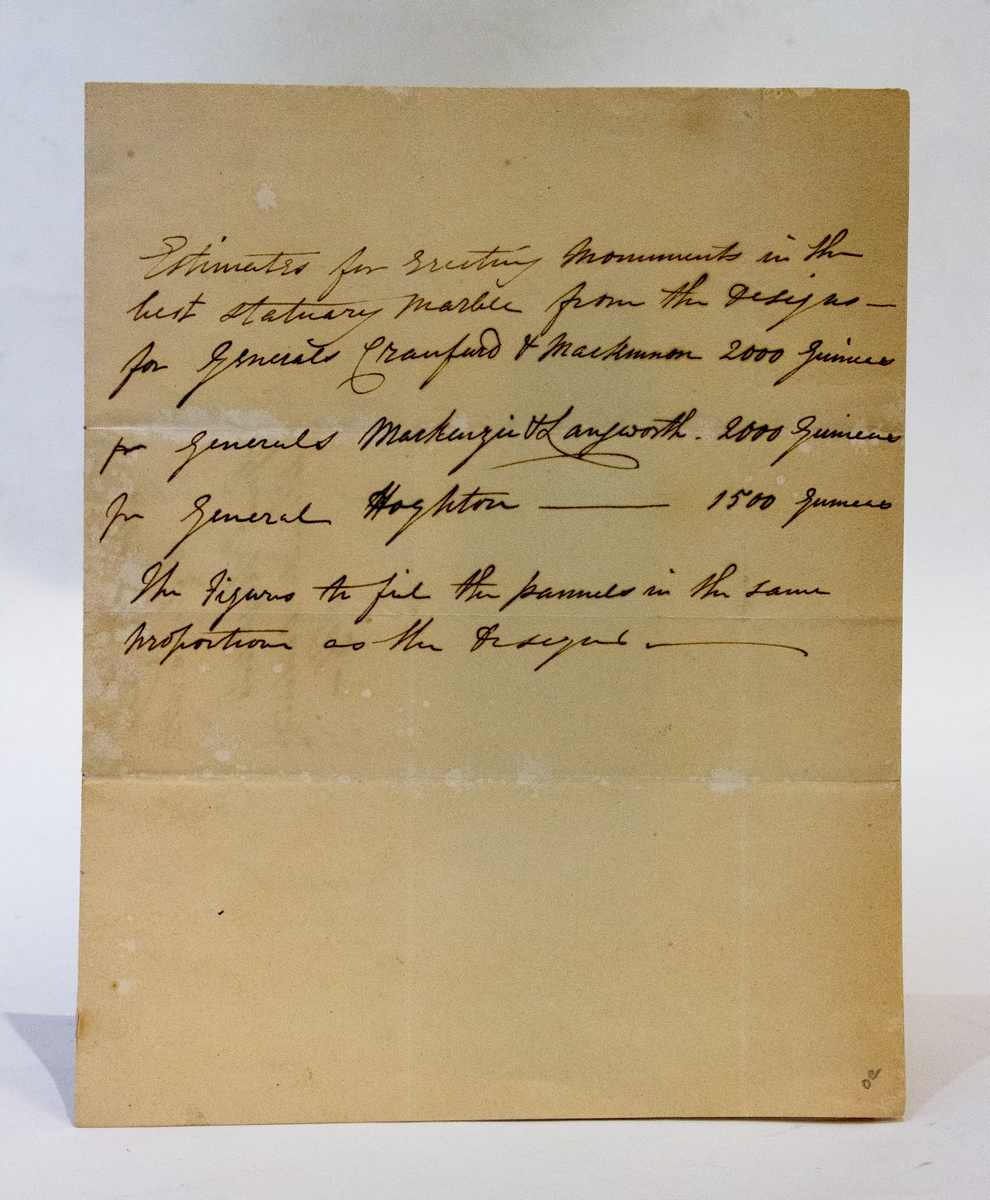 Estimates for Erecting Monuments in the
best statuary Marble from the designs —
for Generals Craufurd & Mackinnon 2000 Guineas
for Generals Mackenzie & Langworth - 2000 Guineas
for General Hoghton —— 1500 Guineas
The Figures to fill the pannels in the same
proportion as the designs. ——